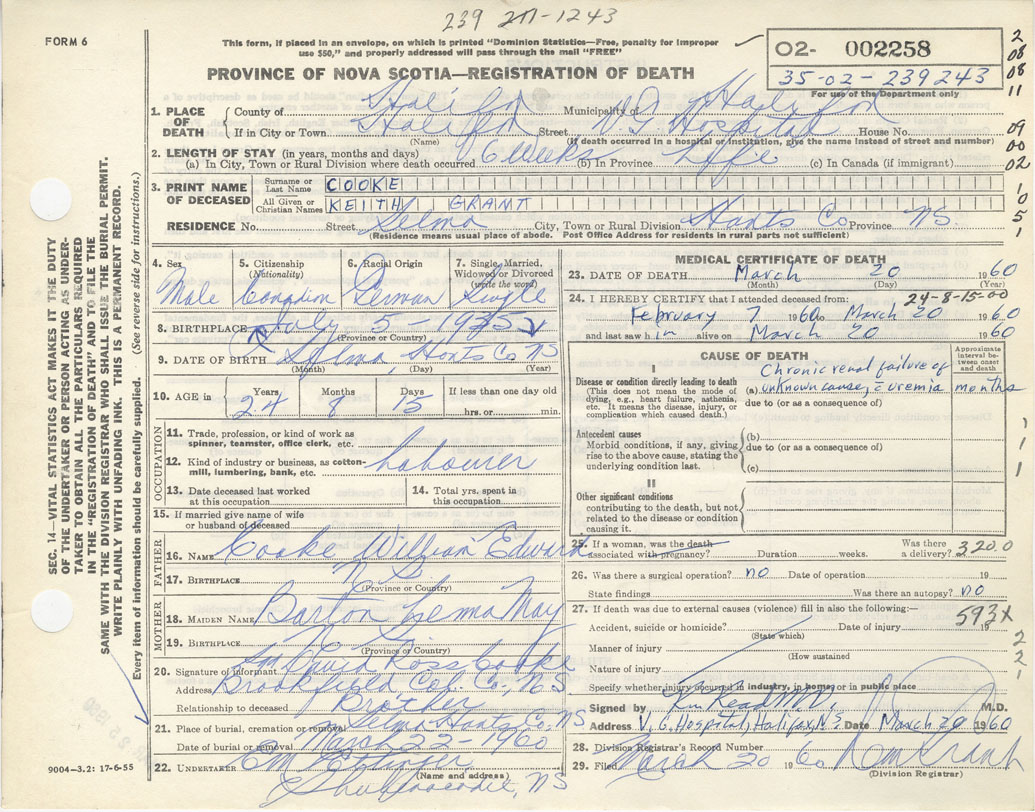 239 211-1243
FORM 6
This form, if placed in an envelope, on which is printed "Dominion Statistics—Free, penalty for improper
use $50," and properly addressed will pass through the mail "FREE"
PROVINCE OF NOVA SCOTIA—REGISTRATION OF DEATH
O2- 002258
35-02-239243
For use of the Department only
2
08
08
11
09
00
02
1
0
5
1
1
1
2
2
1
SEC. 14—VITAL STATISTICS ACT MAKES IT THE DUTY
OF THE UNDERTAKER OR PERSON ACTING AS UNDER-
TAKER TO OBTAIN ALL THE PARTICULARS REQUIRED
IN THE "REGISTRATION OF DEATH" AND TO FILE THE
SAME WITH THE DIVISION REGISTRAR WHO SHALL ISSUE THE BURIAL PERMIT.
WRITE PLAINLY WITH UNFADING INK. THIS IS A PERMANENT RECORD.
Every item of information should be carefully supplied. (See reverse side for instructions.)
1. PLACE OF DEATH
County of Halifax Municipality of Halifax
If in City or Town Halifax Street V.G. Hospital House No.
(Name) (If death occurred in a hospital or institution, give the name instead of street and number)
2. LENGTH OF STAY (in years, months and days)
(a) In City, Town or Rural Division where death occurred 6 Weeks (b) In Province Life (c) In Canada (if immigrant)
3. PRINT NAME OF DECEASED
Surname or Last Name COOKE
All Given or Christian Names KEITH GRANT
RESIDENCE No. Street Selma City, Town or Rural Division Hants Co Province NS
(Residence means usual place of abode. Post Office Address for residents in rural parts not sufficient)
4. Sex Male
5. Citizenship (Nationality) Canadian
6. Racial Origin German
7. Single, Married, Widowed or Divorced (write the word) Single
8. BIRTHPLACE July 5-1935
(Province or Country)
9. DATE OF BIRTH Selma Hants Co NS
(Month) (Day) (Year)
10. AGE in Years 24 Months 8 Days 15 If less than one day old
hrs. or min.
OCCUPATION
11. Trade, profession, or kind of work as
spinner, teamster, office clerk, etc.
12. Kind of industry or business, as cotton-
mill, lumbering, bank, etc. Labourer
13. Date deceased last worked
at this occupation
14. Total yrs. spent in
this occupation
15. If married give name of wife
or husband of deceased
FATHER
16. NAME Cooke William Edward
17. BIRTHPLACE N.S.
(Province or Country)
MOTHER
18. MAIDEN NAME Barton Lemma May
19. BIRTHPLACE N.S.
(Province or Country)
20. Signature of informant David Ross Cooke
Address Brookfield Col. Co., N S
Relationship to deceased Brother
21. Place of burial, cremation or removal Selma Hants Co, NS
Date of burial or removal March 22-1960
22. UNDERTAKER E M Ettinger
(Name and address)
Shubenacadie, NS
9004-3.2: 17-6-55
MEDICAL CERTIFICATE OF DEATH
23. DATE OF DEATH March 20 1960
(Month) (Day) (Year)
24. I HEREBY CERTIFY that I attended deceased from: 24-8-15-00
February 7 1960 to March 20 1960
and last saw him alive on March 20 1960
CAUSE OF DEATH
Approximate interval between onset and death
I
Disease or condition directly leading to death
(This does not mean the mode of
dying, e.g., heart failure, asthenia,
etc. It means the disease, injury, or
complication which caused death.)
Chronic renal failure of
(a) unknown cause, c̄ uremia months
due to (or as a consequence of)
Antecedent causes
Morbid conditions, if any, giving
rise to the above cause, stating the
underlying condition last.
(b)
due to (or as a consequence of)
(c)
II
Other significant conditions
contributing to the death, but not
related to the disease or condition
causing it.
25. If a woman, was the death
associated with pregnancy? Duration weeks. Was there a delivery? 320.0
26. Was there a surgical operation? no Date of operation 19
State findings Was there an autopsy? no
27. If death was due to external causes (violence) fill in also the following:— 593x
Accident, suicide or homicide? Date of injury 19
(State which)
Manner of injury
(How sustained
Nature of injury
Specify whether injury occurred in industry, in home, or in public place
Signed by Ken Read M.D. M.D.
Address V.G. Hospital, Halifax, N.S. Date March 20 1960
28. Division Registrar's Record Number
29. Filed March 20 1960
(Division Registrar)